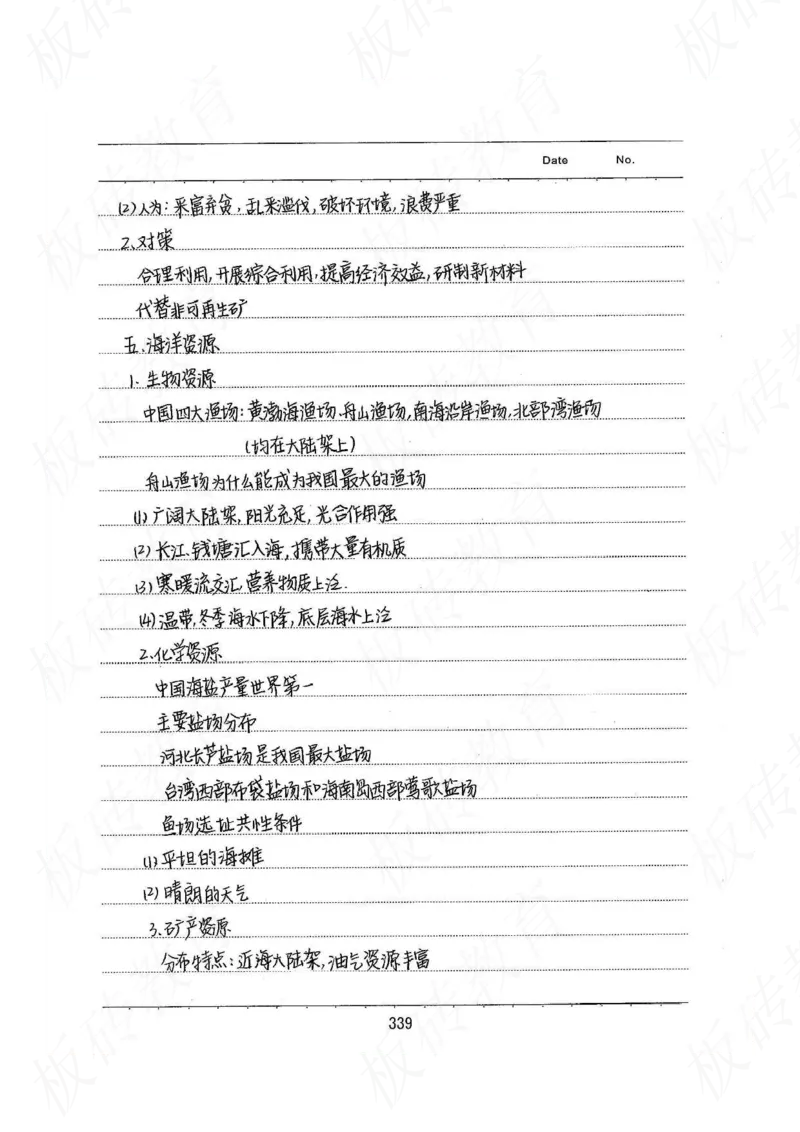 Date No.
(2)人为:采富弃贫,乱采滥伐,破坏环境,浪费严重
2.对策
合理利用,开展综合利用,提高经济效益,研制新材料
代替非可再生矿
五.海洋资源
1.生物资源
中国四大渔场:黄渤海渔场.舟山渔场,南海沿岸渔场,北部湾渔场
(均在大陆架上)
舟山渔场为什么能成为我国最大的渔场
(1)广阔大陆架,阳光充足,光合作用强
(2)长江.钱塘汇入海,携带大量有机质
(3)寒暖流交汇营养物质上泛.
(4)温带,冬季海水下降,底层海水上泛
2.化学资源
中国海盐产量世界第一
主要盐场分布
河北长芦盐场是我国最大盐场
台湾西部布袋盐场和海南岛西部莺歌盐场
鱼场选址共性条件
(1)平坦的海摊
(2)晴朗的天气
3.矿产资源
分布特点:近海大陆架,油气资源丰富
339
板砖教育